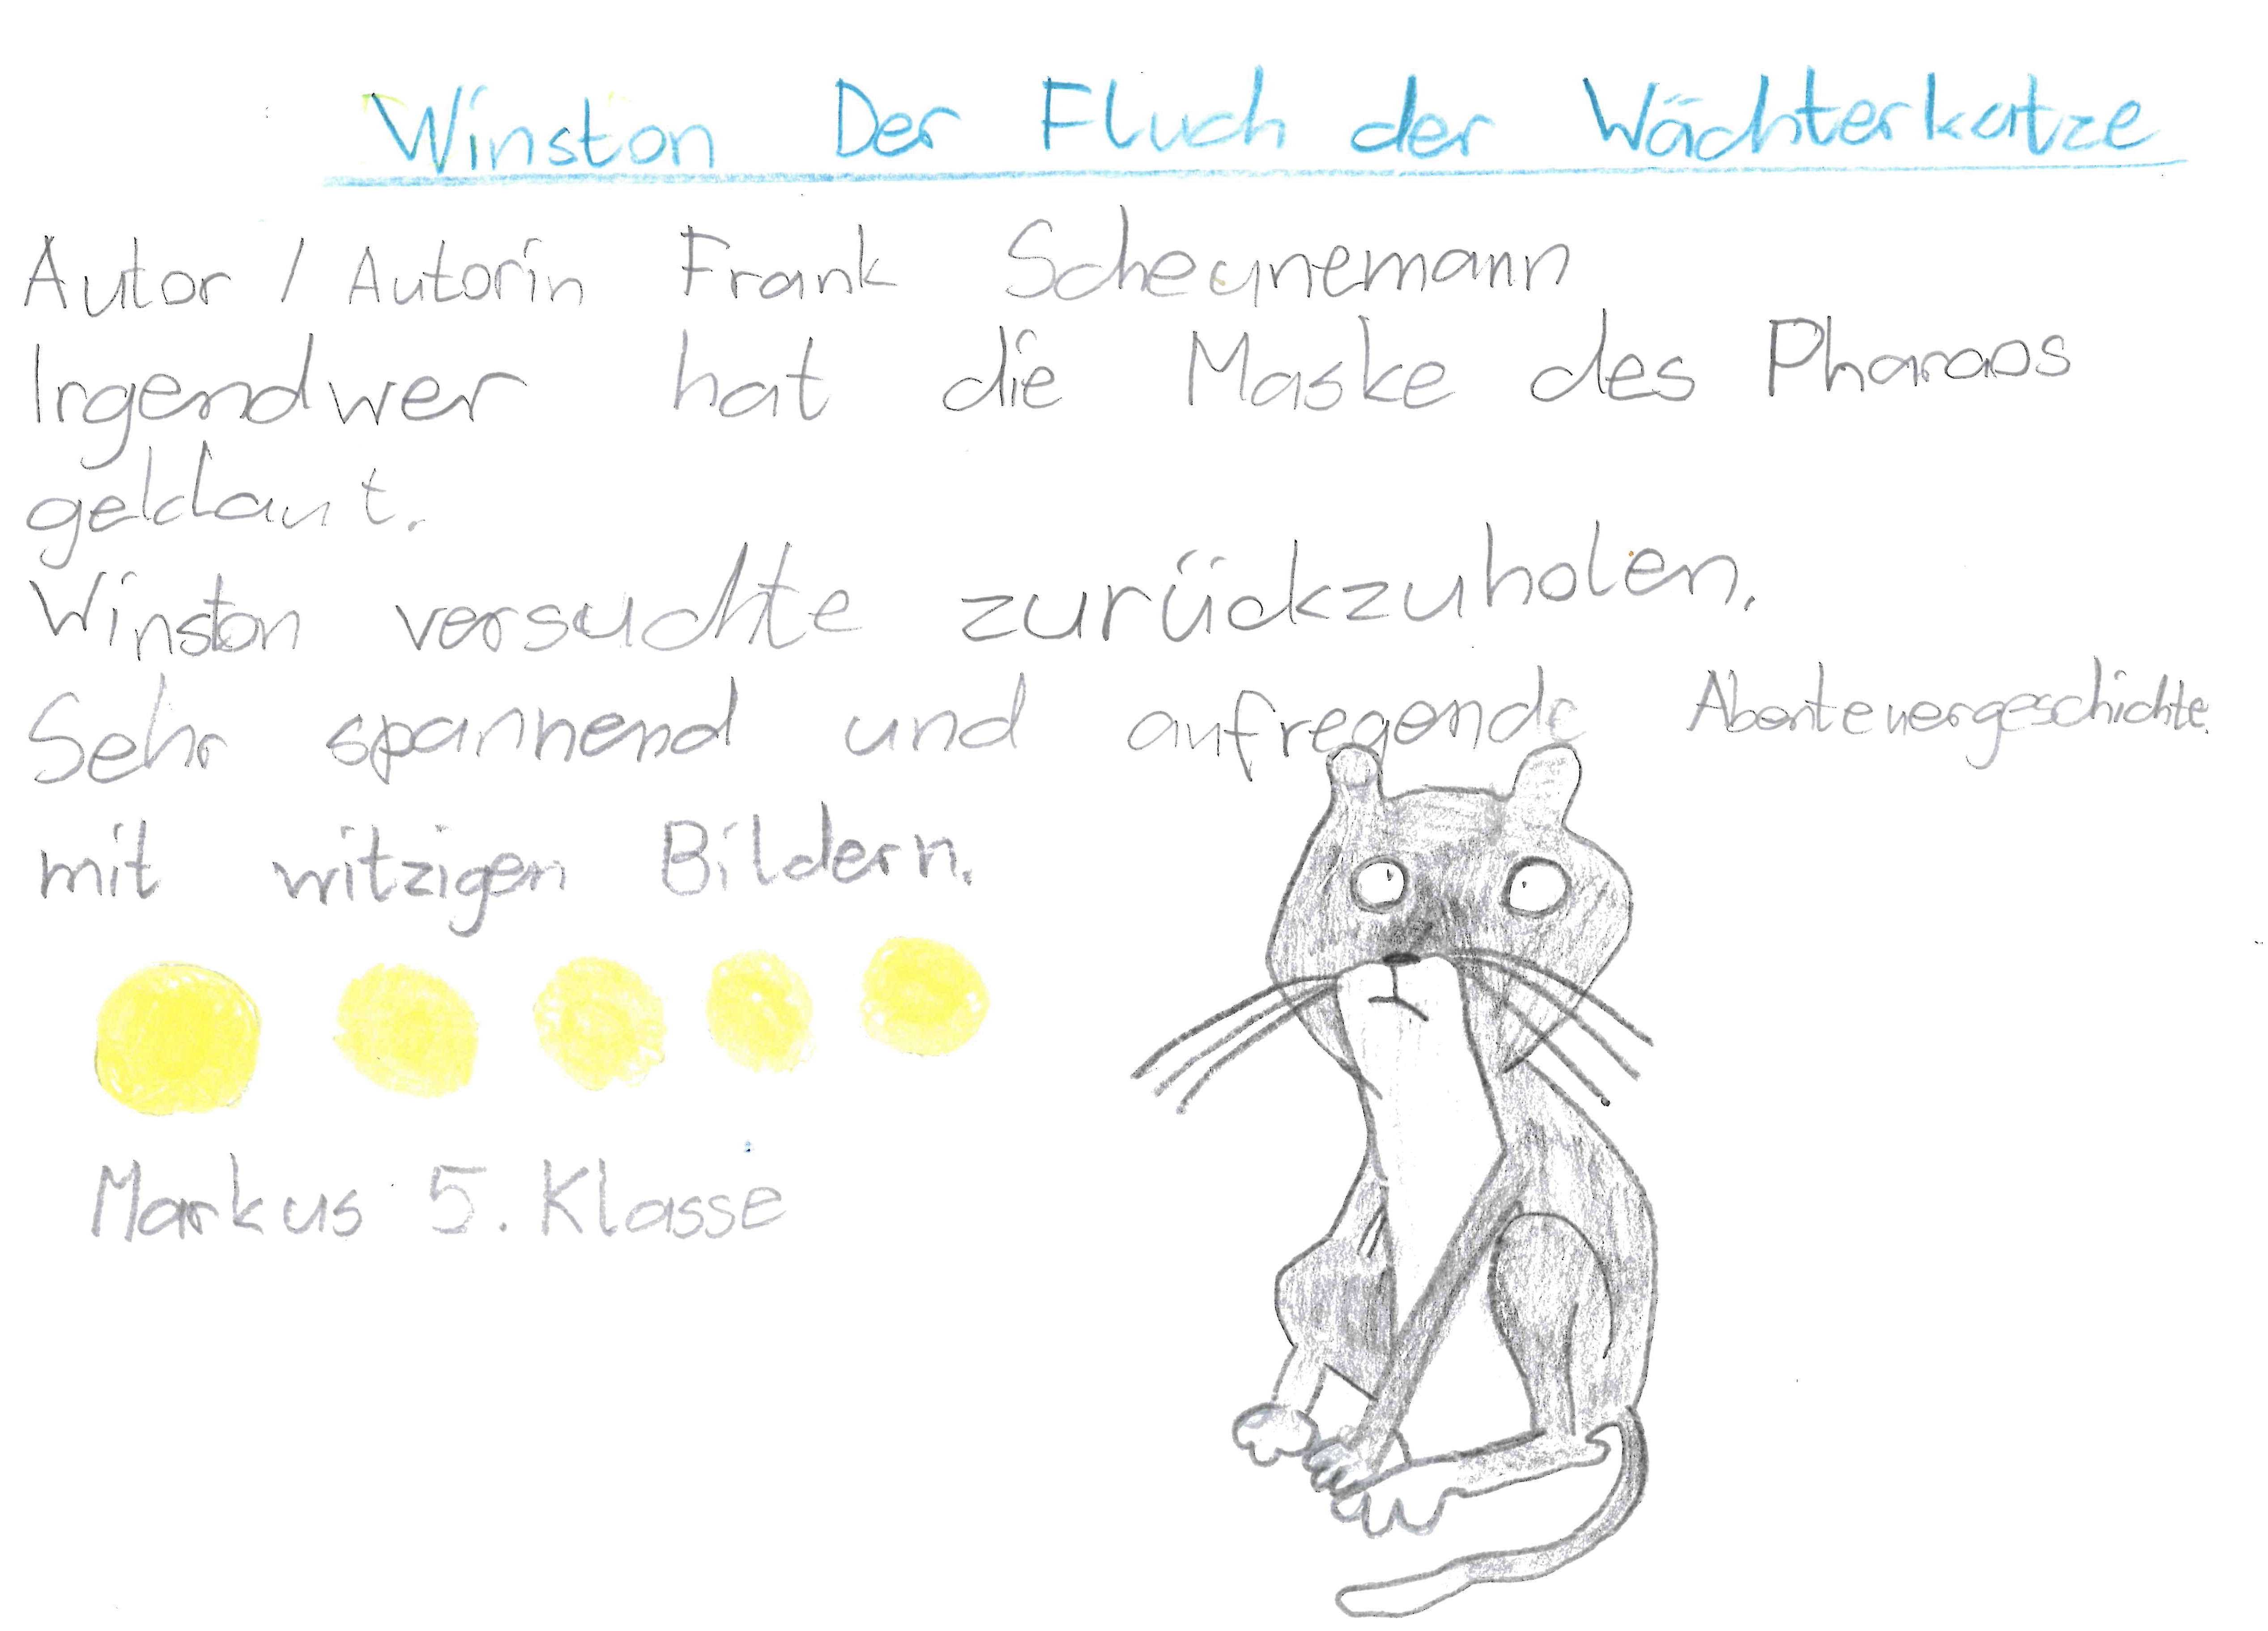 Winston Der Fluch der Wächterkatze
Autor / Autorin Frank Scheunemann
Irgendwer hat die Maske des Pharaos
geklaut.
Winston versuchte zurückzuholen.
Sehr spannend und aufregende Abenteuergeschichte.
mit witzigen Bildern.
Markus 5. Klasse